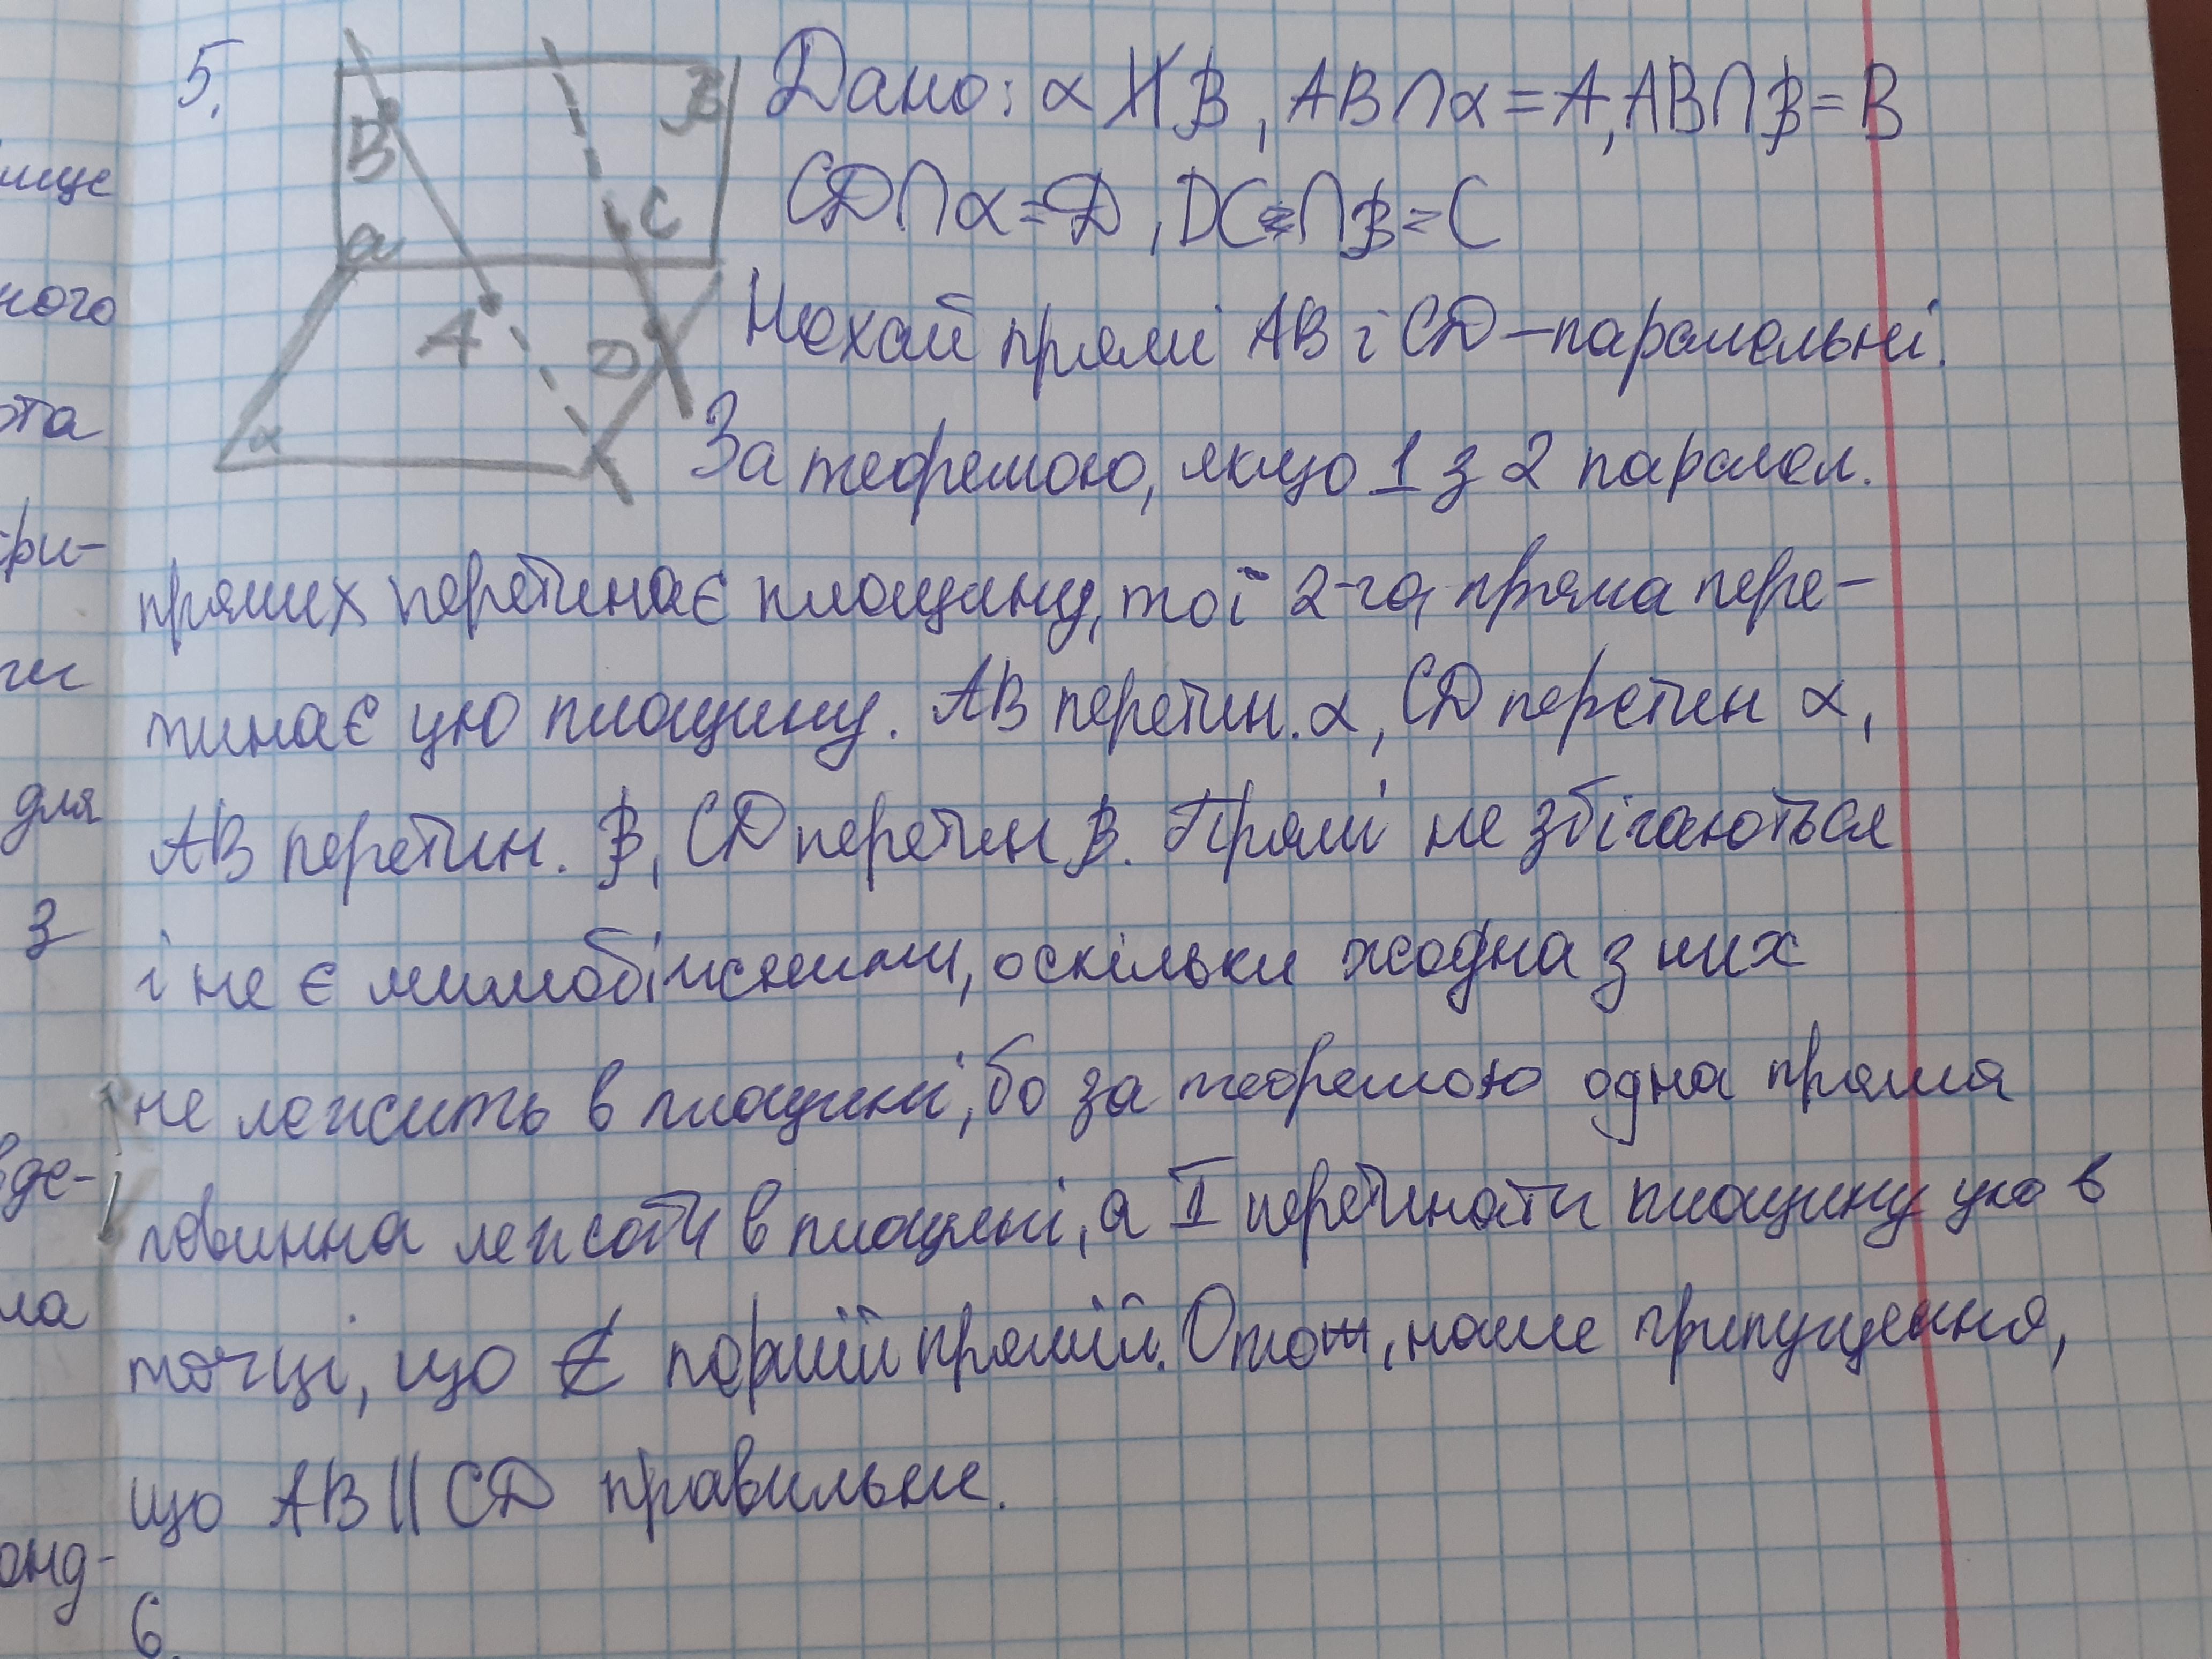 5.
B
β
a
C
A
D
α
Дано: α ∦ β, AB∩α=A, AB∩β=B
CD∩α=D, DC∩β=C
Нехай прямі AB і CD – паралельні.
За теоремою, якщо 1 з 2 паралел.
прямих перетинає площину, то і 2-га пряма пере-
тинає цю площину. AB перетин. α, CD перетин α,
AB перетин. β, CD перетин β. Прямі не збігаються
і не є мимобіжними, оскільки жодна з них
не лежить в площині, бо за теоремою одна пряма
повинна лежати в площині, а II перетинати площину цю в
точці, що ∉ першій прямій. Отож, наше припущення,
що AB || CD правильне.
6.
ище
ного
ота
три-
ги
для
з
ла